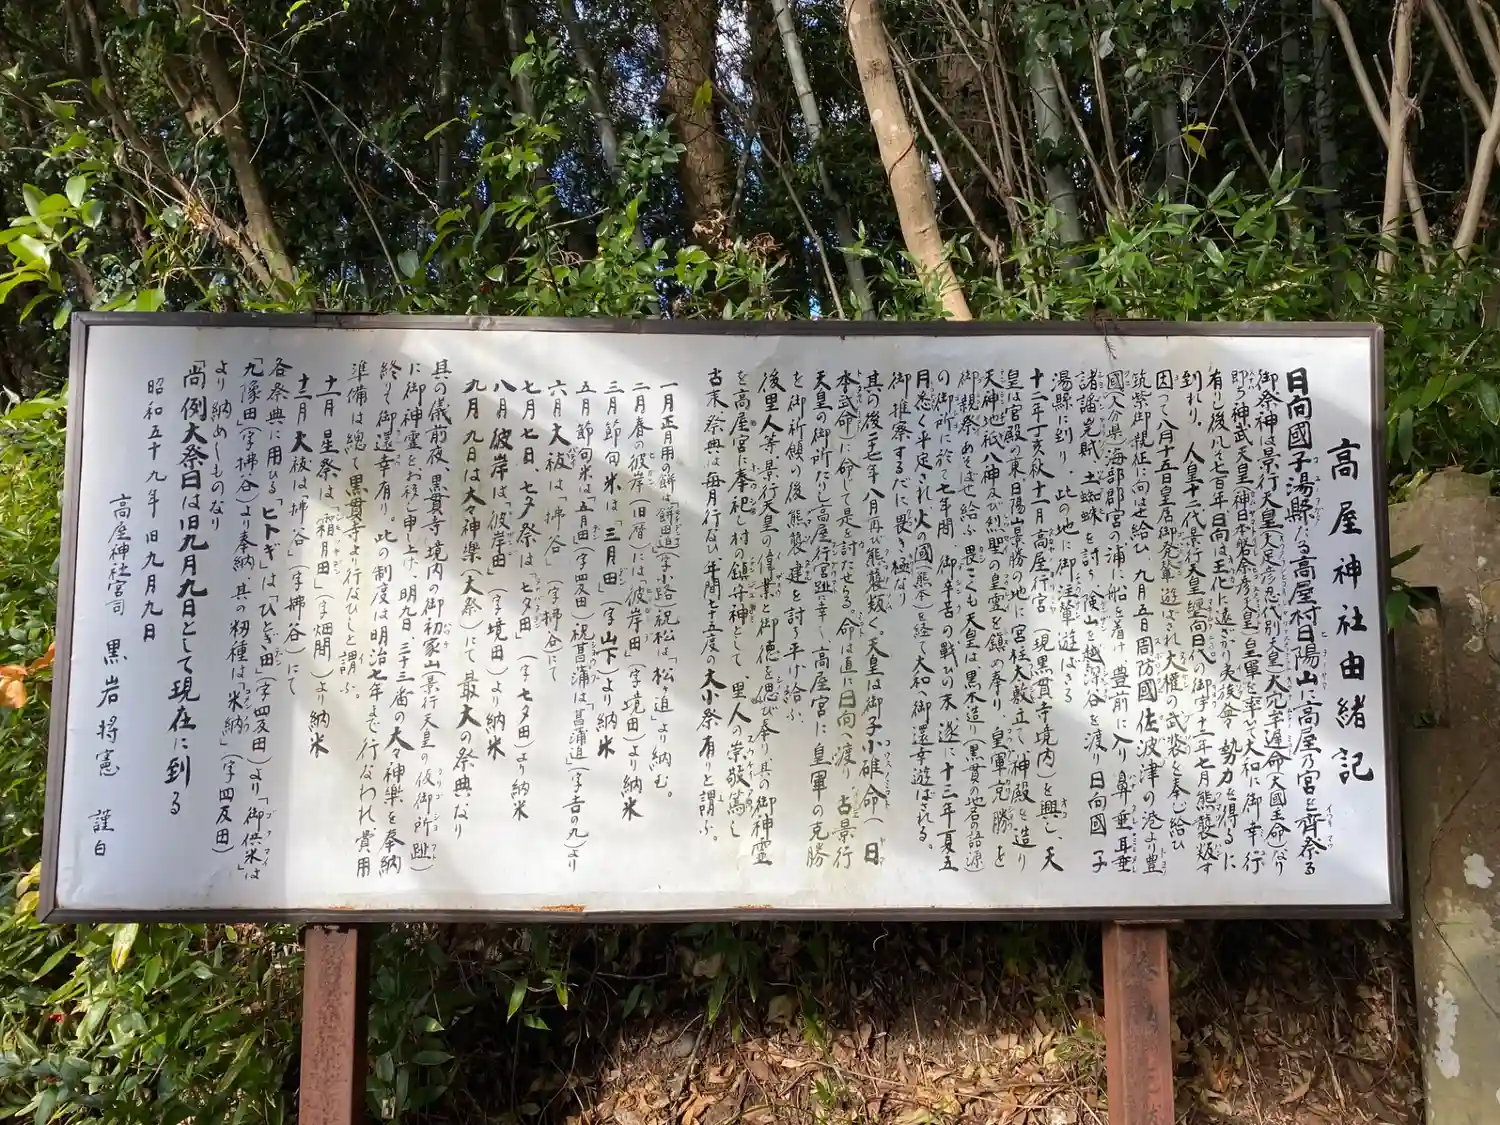 高屋神社由緒記
日向國子湯縣なる高屋村日陽山に高屋乃宮と齊祭る
御祭神は景行天皇(大足彦忍代別天皇)大元字遅命(大國主命)なり
即ち神武天皇(神日本岩余彦天皇)皇軍を率いて大和に御幸行
有りし後凡そ七百年日向は王化に遠ざかり其後会々勢力を得るに
到れり、人皇十二代景行天皇(纒向日代の御宇)十二年七月熊襲叛す
因って八月十五日皇居御発輦遊ばされ大權の武裝を奉じ給ひ
筑紫御親征に向はせ給ひ 九月五日周防國佐波津の港より豊
國(大分県)海部郡宮の浦に船を着け豊前に入り鼻垂耳垂
諸謡兇賊 土蜘蛛を討ち、陵山を越え深谷を渡り日向國 子
湯縣に到り、此の地に御注輦遊ばさる
十二年丁亥秋十一月高屋行宮(現黒貫寺境内)を興し、天
皇は宮殿の東日陽山景勝の地に宮柱大敷立て神殿を造り
天神地祇八神及び剣璽の皇霊を鎮め奉り、皇軍克勝を
御親祭あそばせ給ふ 畏こくも天皇は黒木造り(黒貫の地名の語源)
の御所に於て七年間 御辛苦の戦いの末 遂に十三年夏五
月悉く平定され火の國(熊本)を経て大和へ御還幸遊ばれる。
御推察するだに畏き極なり
其の後二七年八月再び熊襲叛く。天皇は御子小碓命(日
本武命)に命じて是を討たせらる。命は直に日向へ渡り、古景行
天皇の御所なりし高屋行宮趾に幸し高屋宮に皇軍の克勝
を御祈願の後、熊襲建を討ち平げ給ふ
後里人等景行天皇の偉業と御徳を偲び奉り其の御神霊
を高屋宮に奉祀し村の鎮守神として、里人の崇敬篤し
古来祭典は毎月行ない年間七十五度の大小祭有りと謂ふ。
一月正月用の餅は「餅田迫」(字小路)祝松は「松ヶ迫」より納む。
二月春の彼岸(旧暦)には「彼岸田」(字境田)より納米
三月節句米は「三月田」(字山下)より納米
五月節句米は「五月田」(字四及田)祝菖蒲は「菖蒲迫」(字吉の九)より
六月大祓は「拂谷」(字拂谷)にて
七月七日七夕祭は「七夕田」(字七夕田)より納米
八月彼岸は、「彼岸田」(字境田)より納米
九月九日は大々神樂(大祭)にて最大の祭典なり
其の儀前夜、黒貫寺境内の御初家山(景行天皇の仮御所趾)
に御神霊をお移し申し上げ、明九日、三十三番の大々神樂を奉納
終りて御還幸有り。此の制度は明治七年まで行なわれ費用
準備は總て黒貫寺より行なひしと謂ふ。
十一月星祭は「霜月田」(字畑間)より納米
十二月大祓は「拂谷」(字拂谷)にて
各祭典に用ひる「ヒトギ」は「ひとぎ田」(字四及田)より「御供米」は
「九像田」(字拂谷)より奉納 其の籾種は「米納」(字四及田)
より納めしものなり
「尚例大祭日は旧九月九日として現在に到る
昭和五十九年旧九月九日
高屋神社宮司 黒岩将憲 謹白